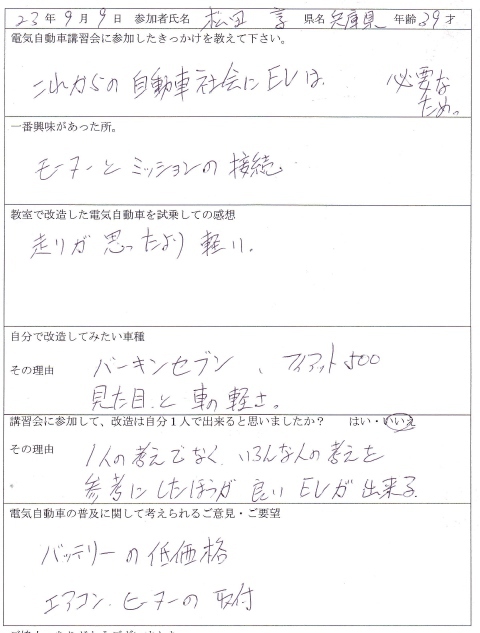 23年9月9日 参加者氏名 松田 享 県名 兵庫県 年齢 39才
電気自動車講習会に参加したきっかけを教えて下さい。
これからの自動車社会にEVは 必要な
ため。
一番興味があった所。
モーターとミッションの接続
教室で改造した電気自動車を試乗しての感想
走りが思ったより軽い。
自分で改造してみたい車種
バーキンセブン、フィアット500
その理由
見た目と車の軽さ。
講習会に参加して、改造は自分1人で出来ると思いましたか? はい・いいえ
その理由 1人の考えでなく、いろんな人の考えを
参考にしたほうが良いEVが出来る
電気自動車の普及に関して考えられるご意見・ご要望
バッテリーの低価格
エアコン、ヒーターの取付